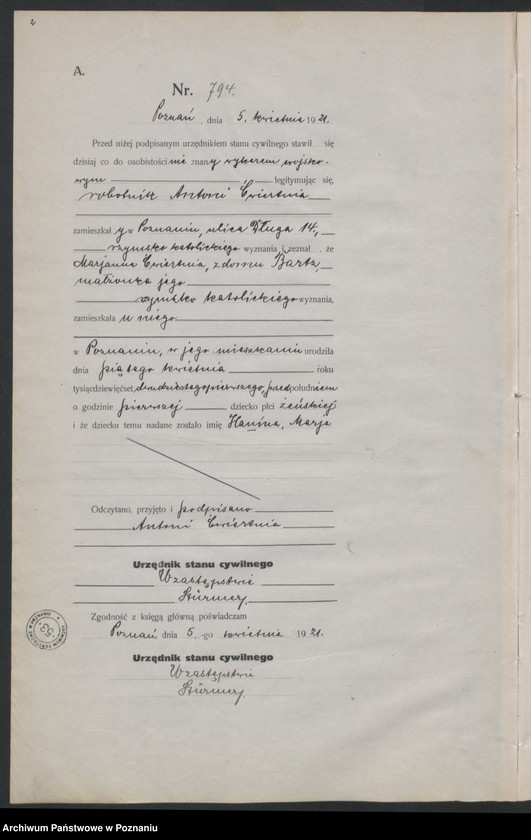 2
A.
Nr. 794.
Poznań, dnia 5. kwietnia 1921.
Przed niżej podpisanym urzędnikiem stanu cywilnego stawił się
dzisiaj co do osobistości nie znany wykazem wojsko-
wym legitymując się,
robotnik Antoni Ćwiertnia
zamieszkały w Poznaniu, ulica Długa 14,
rzymsko katolickiego wyznania i zeznał, że
Marjanna Ćwiertnia, z domu Bartz,
małżonka jego
rzymsko katolickiego wyznania,
zamieszkała u niego
w Poznaniu, w jego mieszkaniu urodziła
dnia piątego kwietnia roku
tysiącdziewięćset dwudziestego pierwszego, przedpołudniem
o godzinie pierwszej dziecko płci żeńskiej
i że dziecku temu nadane zostało imię Hanina, Marja
Odczytano, przyjęto i podpisano
Antoni Ćwiertnia
Urzędnik stanu cywilnego
W zastępstwie
Stürmer.
Zgodność z księgą główną poświadczam
Poznań dnia 5.-go kwietnia 1921.
Urzędnik stanu cywilnego
W zastępstwie
Stürmer.
53
Archiwum Państwowe w Poznaniu